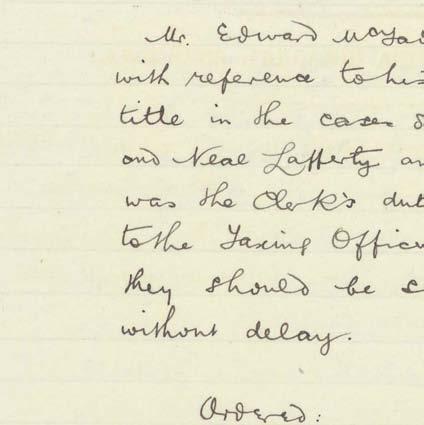 Mr. Edward
with reference to his
title in the cases
and Neal Lafferty
was the Clerk's
to the Taxing
they should be
without delay.
Ordered: